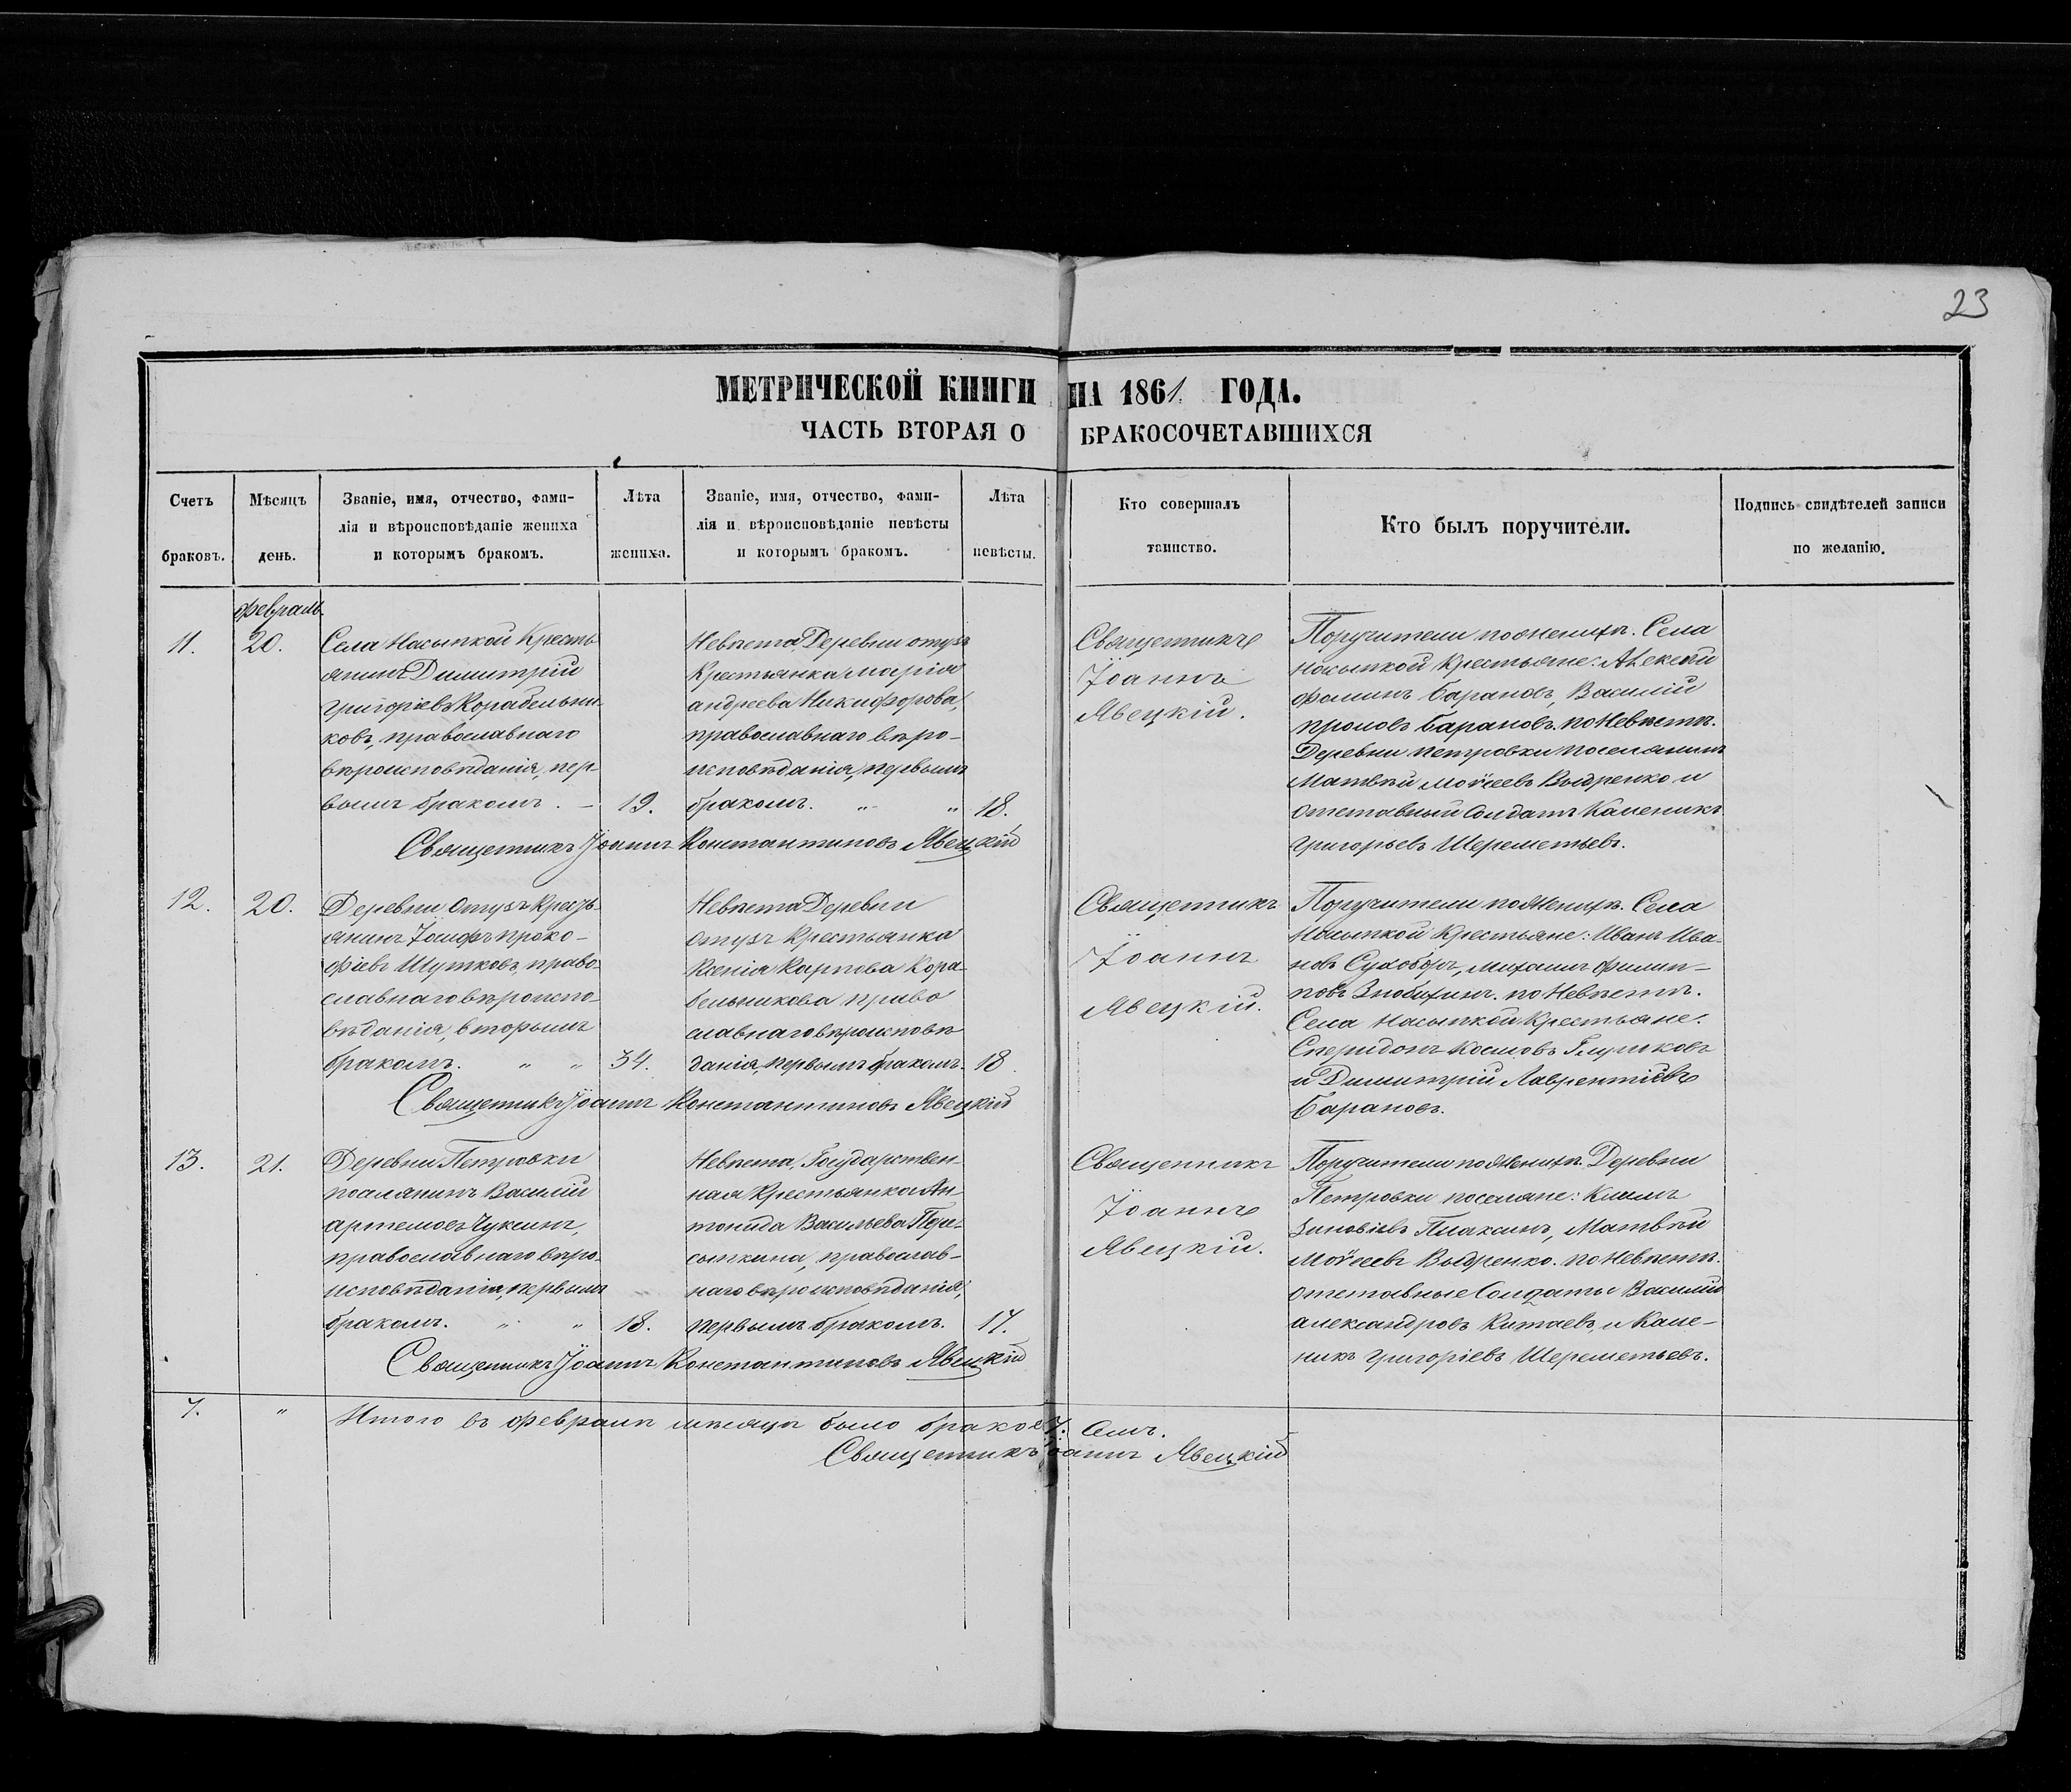 23
МЕТРИЧЕСКОЙ КНИГИ НА 1861 ГОДА.
ЧАСТЬ ВТОРАЯ О БРАКОСОЧЕТАВШИХСЯ
Счетъ браковъ.
Мѣсяцъ день.
Званіе, имя, отчество, фами-
лія и вѣроисповѣданіе жениха
и которымъ бракомъ.
Лѣта жениха.
Званіе, имя, отчество, фами-
лія и вѣроисповѣданіе невѣсты
и которымъ бракомъ.
Лѣта невѣсты.
Кто совершалъ
таинство.
Кто былъ поручители.
Подпись свидѣтелей записи
по желанію.
февраль.
11.
20.
Села Насыпкой Кресть
янинъ Димитрій
Григоріевъ Корабельни-
ковъ, православнаго
вѣроисповѣданія, пер-
вымъ бракомъ. –
19.
Невѣста, Деревни отузъ
Крестьянка, марія
андреева Никифорова,
православнаго вѣро-
исповѣданія, первымъ
бракомъ. „ „
18.
Священникъ
Іоаннъ
Явецкій.
Поручители по женихѣ. Села
насыпкой Крестьяне: Алексѣй
фоминъ барановъ, Василій
барановъ, по Невѣстѣ.
Деревни петровки поселянинъ
Матвѣй Моѵсеевъ Выдренко и
отставный Солдатъ Каленикъ
Григорьевъ Шереметьевъ.
Священникъ Іоаннъ Константиновъ Явецкій
12.
20.
Деревни Отузъ Кресть-
янинъ Іосифъ проко-
фіевъ Шутковъ, право-
славнаго вѣроиспо-
вѣданія, вторымъ
бракомъ. „ „
34.
Невѣста Деревни
отузъ Крестьянка
Ксенія Карпова Кора-
бельникова право
славнаго вѣроисповѣ
данія, первымъ бракомъ.
18.
Священникъ
Іоаннъ
Явецкій.
Поручители по Женихѣ. Села
Насыпкой Крестьяне: Иванъ Ива-
новъ Сухоборъ, михаилъ филип-
повъ Знобихинъ. по Невѣстѣ.
Села Насыпкой Крестьяне:
Спиридонъ Космовъ Глушковъ
и Димитрій Лаврентіевъ
барановъ.
Священникъ Іоаннъ Константиновъ Явецкій
13.
21.
Деревни Петровки
поселянинъ Василій
артемовъ Чуксинъ,
православнаго вѣро-
исповѣданія, первымъ
бракомъ. „ „
18.
Невѣста, Государствен-
ная Крестьянка Ан-
тонида Васильева Пере-
сыпкина, православ-
наго вѣроисповѣданія,
первымъ бракомъ.
17.
Священникъ
Іоаннъ
Явецкій.
Поручители по Женихѣ. Деревни
Петровки поселяне: Климъ
Зиновіевъ Плаксинъ, Матвѣй
Моѵсеевъ Выдренко. по Невѣстѣ.
отставные Солдаты Василій
александровъ Китаевъ, и Кале-
никъ Григоріевъ Шереметьевъ.
Священникъ Іоаннъ Константиновъ Явецкій
7.
„
Итого въ февралѣ мѣсяцѣ было браковъ 7. Семь.
Священникъ Іоаннъ Явецкій